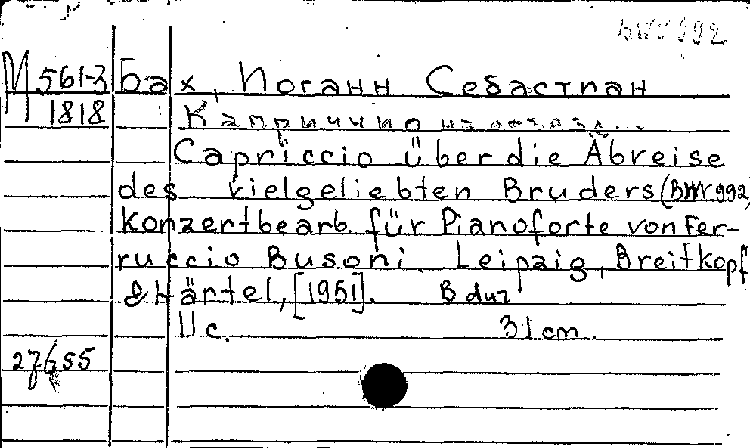 BWV 992
М 561-3 Бах, Иоганн Себастиан
1818 Каприччио на отъезд...
Capriccio über die Abreise
des vielgeliebten Bruders (BWV 992)
Konzertbearb. für Pianoforte von Fer-
ruccio Busoni. Leipzig, Breitkopf
& Härtel, [1951]. B dur
11 c. 31 cm.
27655